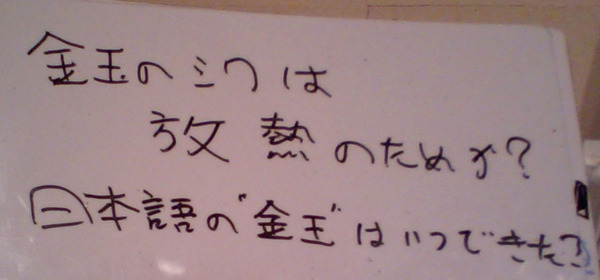 金玉のシワは
放熱のためか?
日本語の"金玉"はいつできた?